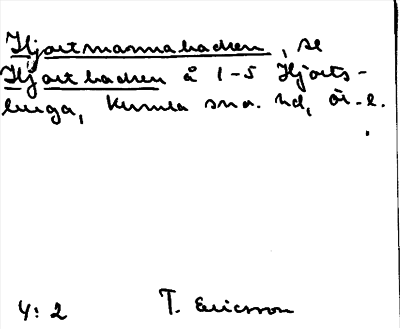 Hjortmannabacken, se
Hjortbacken å 1-5 Hjorts-
berga, Kumla sna. hd, Ör. l.
4:2 T. Ericsson